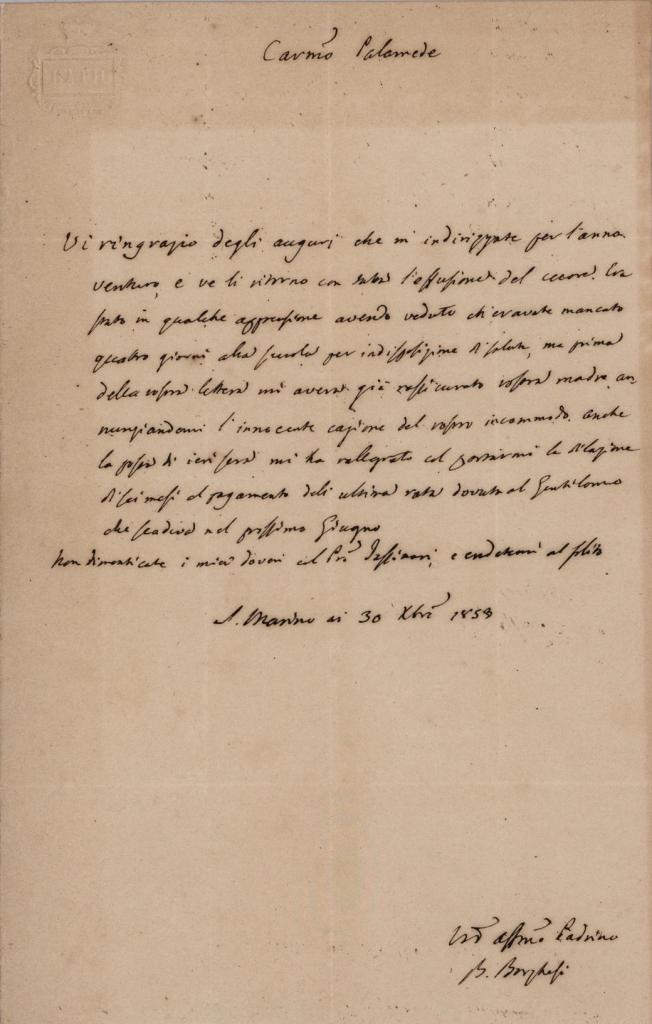 Carmo Palamede
Vi ringrazio degli augurj che mi indirizzate per l'anno
venturo, e ve li ritorno con tutta l'effusione del cuore. Era
stato in qualche apprensione avendo veduto ch'eravate mancato
quattro giorni alla scuola per indisposizione di salute, ma prima
della vostra lettera mi aveva già rassicurato vostra madre an
nunziandomi l'innocente cagione del vostro incommodo. Anche
la posta di jeri sera mi ha rallegrato col portarmi la dilazione
di sei mesi al pagamento dell ultima rata dovuta al Gentilomo
che scadeva nel prossimo Giugno
Non dimenticate i miei doveri col Pr, e credetemi al solito
S. Marino ai 30 Xbre 1853
Vro affmo Padrino
B. Borghesi